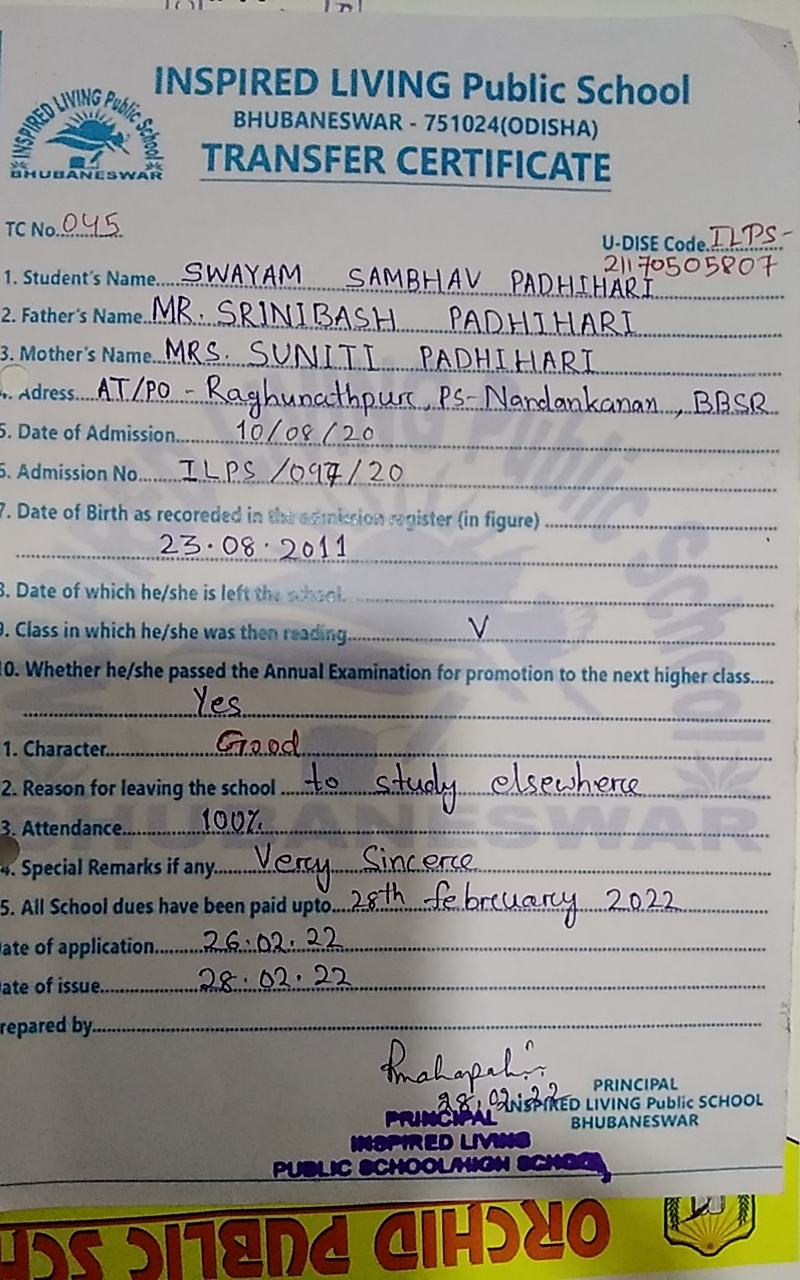 INSPIRED LIVING Public School
BHUBANESWAR
INSPIRED LIVING Public School
BHUBANESWAR - 751024(ODISHA)
TRANSFER CERTIFICATE
TC No. 045
U-DISE Code. ILPS-
21170505807
1. Student's Name SWAYAM SAMBHAV PADHIHARI
2. Father's Name MR. SRINIBASH PADHIHARI
3. Mother's Name MRS. SUNITI PADHIHARI
4. Adress AT/PO - Raghunathpur, PS- Nandankanan, BBSR
5. Date of Admission 10/08/20
6. Admission No ILPS /097/20
7. Date of Birth as recoreded in the admission register (in figure)
23.08.2011
8. Date of which he/she is left the school.
9. Class in which he/she was then reading V
10. Whether he/she passed the Annual Examination for promotion to the next higher class.....
Yes
1. Character Good
2. Reason for leaving the school to study elsewhere
3. Attendance 100%
4. Special Remarks if any Very Sincere
5. All School dues have been paid upto 28th february 2022
ate of application 26.02.22
ate of issue 28.02.22
repared by
28.02.22
PRINCIPAL
INSPIRED LIVING Public SCHOOL
BHUBANESWAR
PRINCIPAL
INSPIRED LIVING
PUBLIC SCHOOL/HIGH SCHOOL
ORCHID PUBLIC SCH